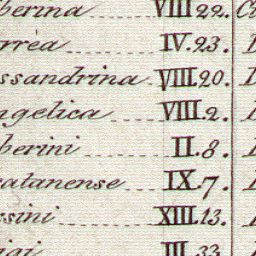 berina VIII.22. C
rrea IV.23.
ssandrina VIII.20.
ngelica VIII.2.
berini II.8.
catanense IX.7.
ssini XIII.13.
igi III.33.